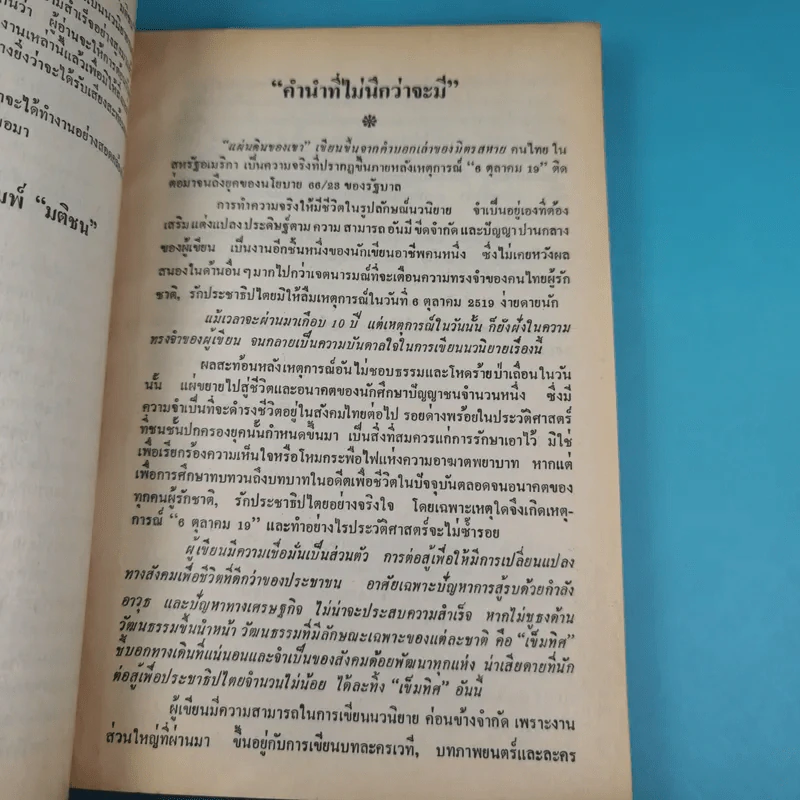 เป็นนวนิยาย
ผู้อ่านจะให้การ
งานเหล่านี้แล้วเพื่อมิให้
ยิ่งว่าจะได้รับเสียงสะท้อน
จะได้ทำงานอย่างสอด
ขอมา
มพ์ “มติชน”
“คำนำที่ไม่นึกว่าจะมี”
“แผ่นดินของเขา” เขียนขึ้นจากคำบอกเล่าของมิตรสหาย คนไทย ใน
สหรัฐอเมริกา เป็นความจริงที่ปรากฏขึ้นภายหลังเหตุการณ์ “6 ตุลาคม 19” ติด
ต่อมาจนถึงยุคของนโยบาย 66/23 ของรัฐบาล
การทำความจริงให้มีชีวิตในรูปลักษณ์นวนิยาย จำเป็นอยู่เองที่ต้อง
เสริมแต่งแปลงประดิษฐ์ตามความสามารถอันมีขีดจำกัด และปัญญาปานกลาง
ของผู้เขียน เป็นงานอีกชิ้นหนึ่งของนักเขียนอาชีพคนหนึ่ง ซึ่งไม่เคยหวังผล
สนองในด้านอื่นๆมากไปกว่าเจตนารมณ์ที่จะเตือนความทรงจำของคนไทยผู้รัก
ชาติ, รักประชาธิปไตยมิให้ลืมเหตุการณ์ในวันที่ 6 ตุลาคม 2519 ง่ายดายนัก
แม้เวลาจะผ่านมาเกือบ 10 ปี แต่เหตุการณ์ในวันนั้น ก็ยังฝังในความ
ทรงจำของผู้เขียน จนกลายเป็นความบันดาลใจในการเขียนนวนิยายเรื่องนี้
ผลสะท้อนหลังเหตุการณ์อันไม่ชอบธรรมและโหดร้ายป่าเถื่อนในวัน
นั้น แผ่ขยายไปสู่ชีวิตและอนาคตของนักศึกษาปัญญาชนจำนวนหนึ่ง ซึ่งมี
ความจำเป็นที่จะดำรงชีวิตอยู่ในสังคมไทยต่อไป รอยด่างพร้อยในประวัติศาสตร์
ที่ชนชั้นปกครองยุคนั้นกำหนดขึ้นมา เป็นสิ่งที่สมควรแก่การรักษาเอาไว้ มิใช่
เพื่อเรียกร้องความเห็นใจหรือโหมกระพือไฟแห่งความอาฆาตพยาบาท หากแต่
เพื่อการศึกษาทบทวนถึงบทบาทในอดีตเพื่อชีวิตในปัจจุบันตลอดจนอนาคตของ
ทุกคนผู้รักชาติ, รักประชาธิปไตยอย่างจริงใจ โดยเฉพาะเหตุใดจึงเกิดเหตุ-
การณ์ “6 ตุลาคม 19” และทำอย่างไรประวัติศาสตร์จะไม่ซ้ำรอย
ผู้เขียนมีความเชื่อมั่นเป็นส่วนตัว การต่อสู้เพื่อให้มีการเปลี่ยนแปลง
ทางสังคมเพื่อชีวิตที่ดีกว่าของประชาชน อาศัยเฉพาะปัญหาการสู้รบด้วยกำลัง
อาวุธ และปัญหาทางเศรษฐกิจ ไม่น่าจะประสบความสำเร็จ หากไม่ชูธงด้าน
วัฒนธรรมขึ้นนำหน้า วัฒนธรรมที่มีลักษณะเฉพาะของแต่ละชาติ คือ “เข็มทิศ”
ชี้บอกทางเดินที่แน่นอนและจำเป็นของสังคมด้อยพัฒนาทุกแห่ง น่าเสียดายที่นัก
ต่อสู้เพื่อประชาธิปไตยจำนวนไม่น้อย ได้ละทิ้ง “เข็มทิศ” อันนี้
ผู้เขียนมีความสามารถในการเขียนนวนิยาย ค่อนข้างจำกัด เพราะงาน
ส่วนใหญ่ที่ผ่านมา ขึ้นอยู่กับการเขียนบทละครเวที, บทภาพยนตร์และละคร